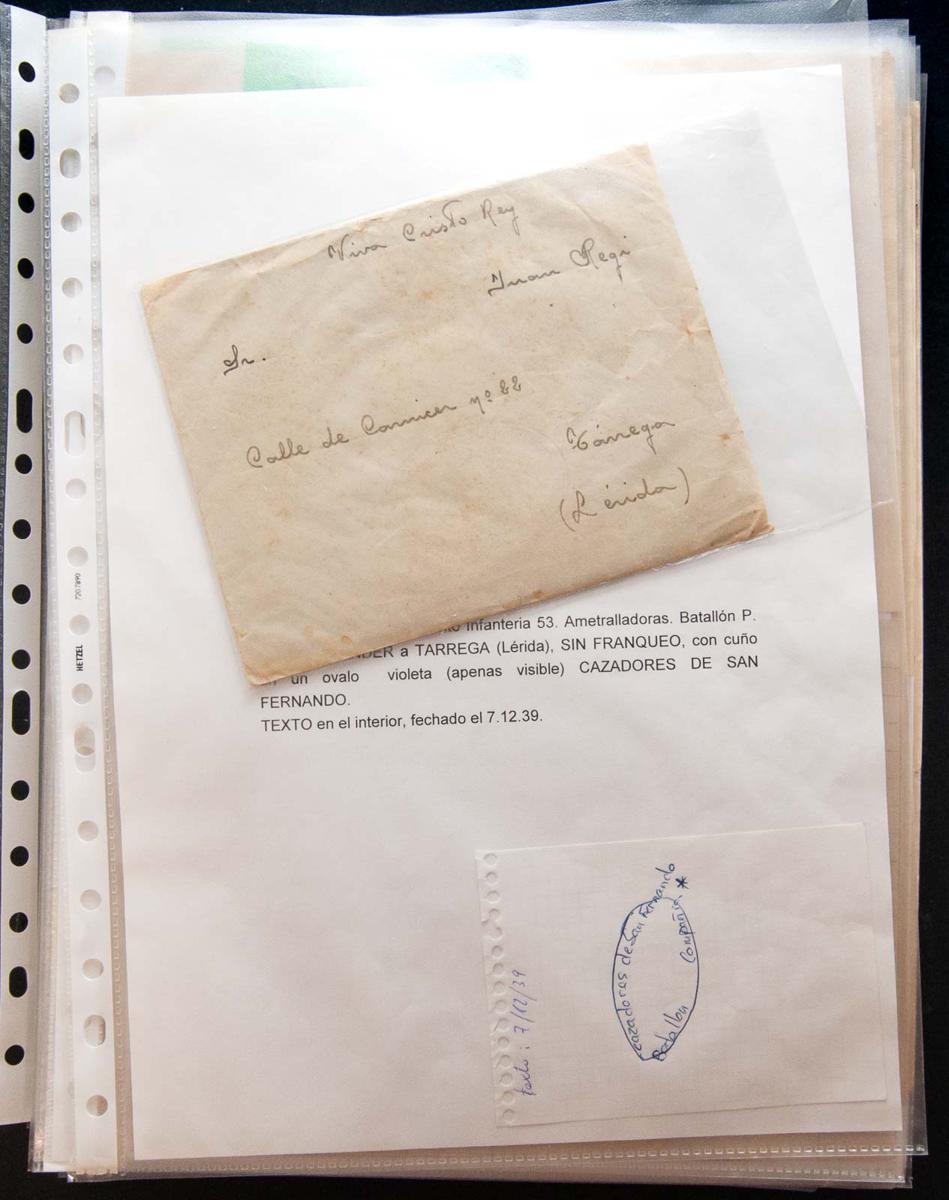 Viva Cristo Rey
Juan Regi
Sr.
Calle de Carnicer nº 22
Tárrega
(Lérida)
Infanteria 53. Ametralladoras. Batallón P.
a TARREGA (Lérida), SIN FRANQUEO, con cuño
un ovalo violeta (apenas visible) CAZADORES DE SAN
FERNANDO.
TEXTO en el interior, fechado el 7.12.39.
texto: 7/12/39
cazadores de San Fernando
Batallón Compañía. *
HETZEL